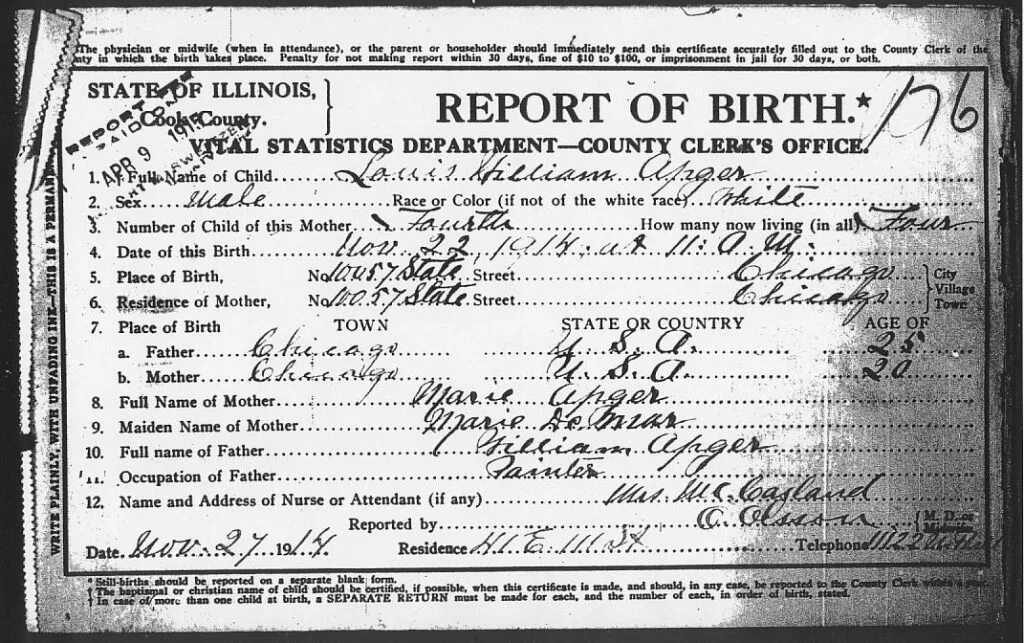 *The physician or midwife (when in attendance), or the parent or householder should immediately send this certificate accurately filled out to the County Clerk of the
nty in which the birth takes place. Penalty for not making report within 30 days, fine of $10 to $100, or imprisonment in jail for 30 days, or both.
STATE OF ILLINOIS,
Cook County.
REPORT OF BIRTH.*
176
REPORT
PAID ON
APR 9 1915
VITAL STATISTICS DEPARTMENT—COUNTY CLERK'S OFFICE.
1. Full Name of Child Louis William Apger
2. Sex Male Race or Color (if not of the white race) White
3. Number of Child of this Mother Fourth How many now living (in all) Four
4. Date of this Birth Nov. 22, 1914 at 11: A.M.
5. Place of Birth, No. 10057 State Street Chicago City
6. Residence of Mother, No. 10057 State Street Chicago Village Town
7. Place of Birth TOWN STATE OR COUNTRY AGE OF
a. Father Chicago U. S. A. 25
b. Mother Chicago U. S. A. 20
8. Full Name of Mother Marie Apger
9. Maiden Name of Mother Marie De Mar
10. Full name of Father William Apger
11. Occupation of Father Painter
12. Name and Address of Nurse or Attendant (if any) Mrs. McCasland
Reported by C. Olsson M. D. or Midwife
Date Nov. 27 1914 Residence 41 E. 111 St Telephone
* Still-births should be reported on a separate blank form.
† The baptismal or christian name of child should be certified, if possible, when this certificate is made, and should, in any case, be reported to the County Clerk within a year.
‡ In case of more than one child at birth, a SEPARATE RETURN must be made for each, and the number of each, in order of birth, stated.
WRITE PLAINLY, WITH UNFADING INK—THIS IS A PERMANE